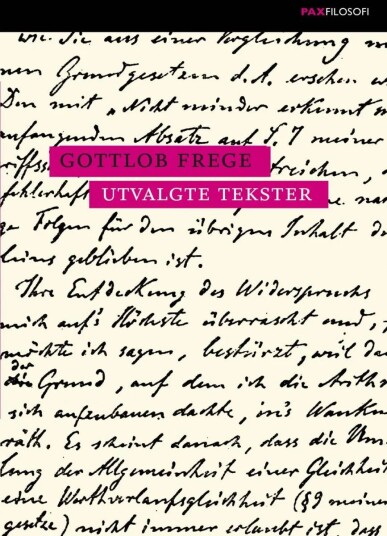 PAXFILOSOFI
wie Sie aus einer Vergleichung m
nen Grundgesetzen d. A. ersehen w
Den mit „Nicht minder erkennt m
anfangenden Absatz auf S. 7 meiner
GOTTLOB FREGE
riffss treichen,
UTVALGTE TEKSTER
fehlerhaf
ge Folgen für den übrigen Inhalt d
leins geblieben ist.
Ihre Entdeckung des Widerspruchs
mich auf's Höchste überrascht und,
möchte ich sagen, bestürzt, weil da
der Grund, auf dem ich die Arith
sich aufzubauen dachte, in's Wank
räth. Es scheint danach, dass die Um
lung der Allgemeinheit einer Gleichheit
eine Werthverlaufsgleichheit (§9 meiner
gesetze) nicht immer erlaubt ist, dass